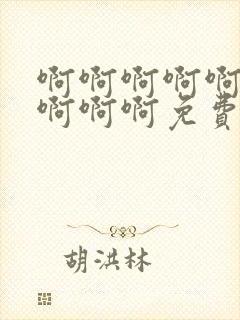 啊啊啊啊啊
啊啊啊免费
胡洪林